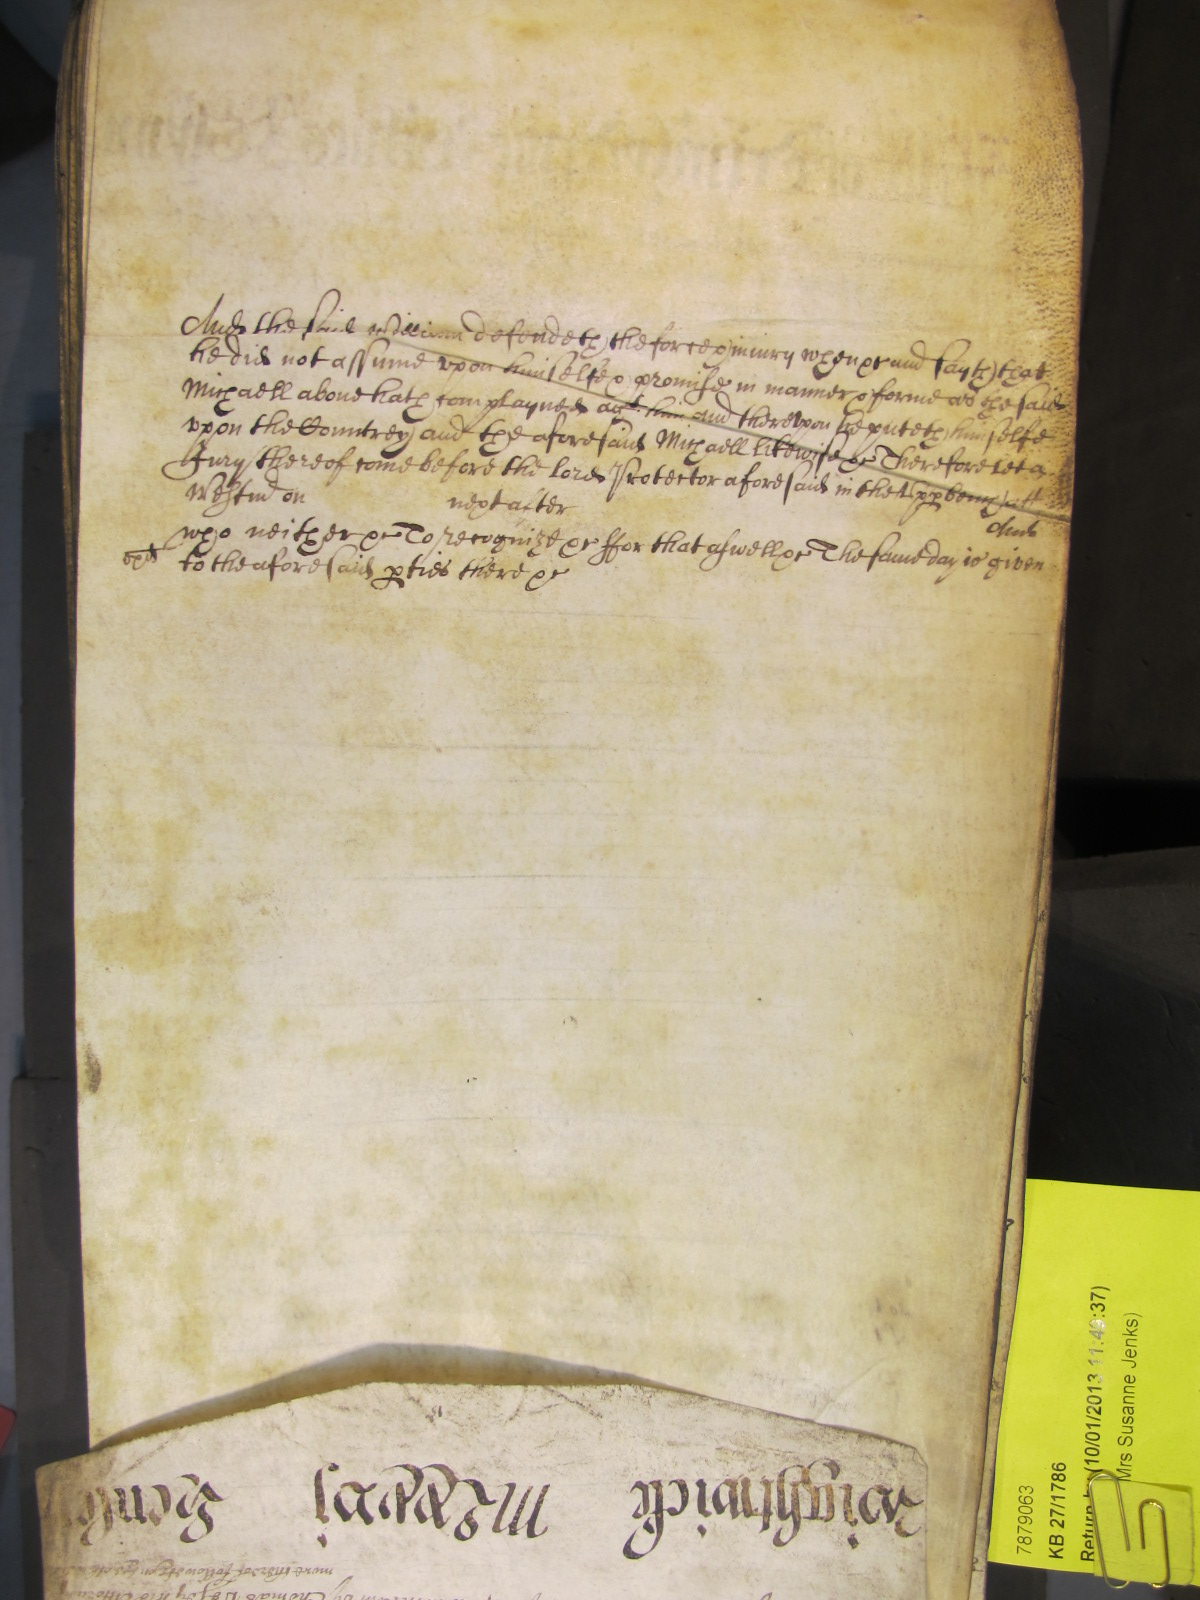 And the said William defendeth the force & iniury when &c and sayth that
he did not assume vpon himselfe & promise in manner & forme as the said
Michaell aboue hath complayned agt him and therevpon he puteth himselfe
vpon the Countrey and the aforesaid Michaell likewise &c Therefore let a
Jury thereof come before the lord Protector aforesaid in the vpp bench att
Westm on next after and
who neither &c To recognize &c ffor that aswell &c The same day is given
expd
to the aforesaid pties there &c
Wightwick Kent
by Thomas his Attorney
more thereof followeth on
7879063
KB 27/1786
Return by (10/01/2013 11:43:37)
Mrs Susanne Jenks)